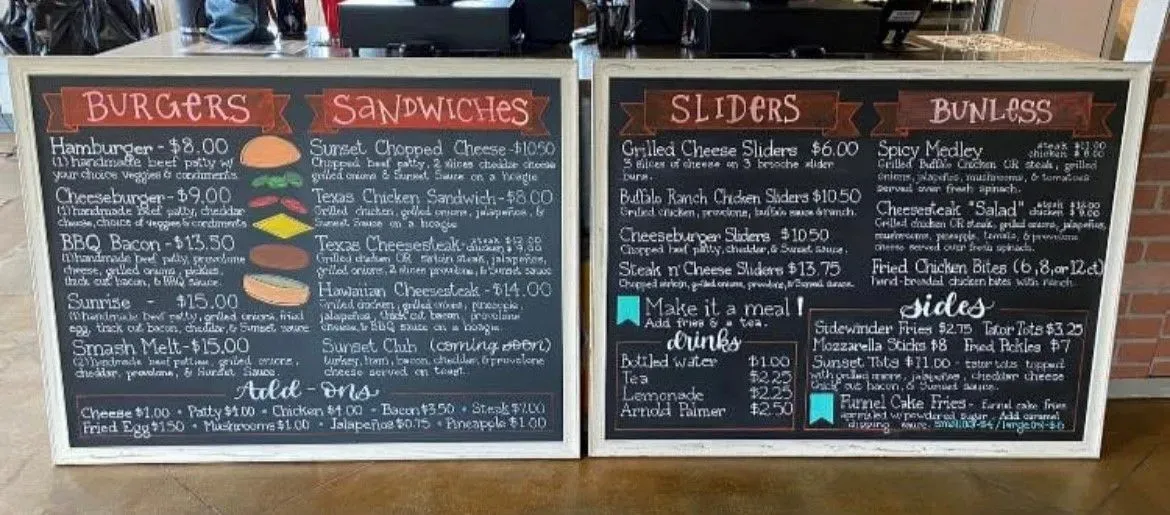 BURGERS
Hamburger - $8.00
(1) handmade beef patty w/
your choice veggies & condiments.
Cheeseburger - $9.00
(1) handmade beef patty, cheddar
cheese, choice of veggies & condiments
BBQ Bacon - $13.50
(1) handmade beef patty, provolone
cheese, grilled onions, pickles,
thick cut bacon, & BBQ sauce.
Sunrise - $15.00
(1) handmade beef patty, grilled onions, fried
egg, thick cut bacon, cheddar, & Sunset sauce
Smash Melt - $15.00
(2) handmade beef patties, grilled onions,
cheddar, provolone, & Sunset Sauce.
SANDWICHES
Sunset Chopped Cheese - $10.50
Chopped beef patty, 2 slices cheddar cheese
grilled onions & Sunset Sauce on a hoagie
Texas Chicken Sandwich - $8.00
Grilled chicken, grilled onions, jalapeños, &
Sunset Sauce on a hoagie
Texas Cheesesteak - steak
chicken
Grilled chicken OR sirloin steak, jalapeños,
grilled onions, 2 slices provolone, & Sunset sauce
Hawaiian Cheesesteak - $14.00
Grilled chicken, grilled onions, pineapple,
jalapeños, thick cut bacon, provolone
cheese, & BBQ sauce on a hoagie.
Sunset Club (coming soon)
turkey, ham, bacon, cheddar, & provolone
cheese served on toast.
Add-ons
Cheese $1.00 • Patty $4.00 • Chicken $4.00 - Bacon $3.50 • Steak $7.00
Fried Egg $1.50 • Mushrooms $1.00 • Jalapeños $0.75 • Pineapple $1.00
SLIDERS
Grilled Cheese Sliders $6.00
3 slices of cheese on 3 brioche slider
buns.
Buffalo Ranch Chicken Sliders $10.50
Grilled chicken, provolone, buffalo sauce & ranch.
Cheeseburger Sliders $10.50
Chopped beef patty, cheddar, & Sunset sauce.
Steak n' Cheese Sliders $13.75
Chopped sirloin, grilled onions, provolone, & Sunset sauce.
Make it a meal!
Add fries & a tea.
drinks
Bottled water $1.00
Tea $2.25
Lemonade $2.25
Arnold Palmer $2.50
BUNLESS
Spicy Medley steak
chicken
Grilled Buffalo Chicken OR steak, grilled
onions, jalapeños, mushrooms, & tomatoes
served over fresh spinach.
Cheesesteak "Salad" steak
chicken
Grilled chicken OR steak, grilled onions, jalapeños,
mushrooms, pineapple, tomato, & provolone
cheese served over fresh spinach.
Fried Chicken Bites (6, 8, or 12 ct)
hand-breaded chicken bites with ranch.
sides
Sidewinder Fries $2.75 Tator Tots $3.25
Mozzarella Sticks $8 Fried Pickles $7
Sunset Tots $11.00 - tater tots topped
with grilled onions, jalapeños, cheddar cheese
thick cut bacon, & Sunset sauce.
Funnel Cake Fries - funnel cake fries
sprinkled w/ powdered sugar. Add caramel
dipping sauce.